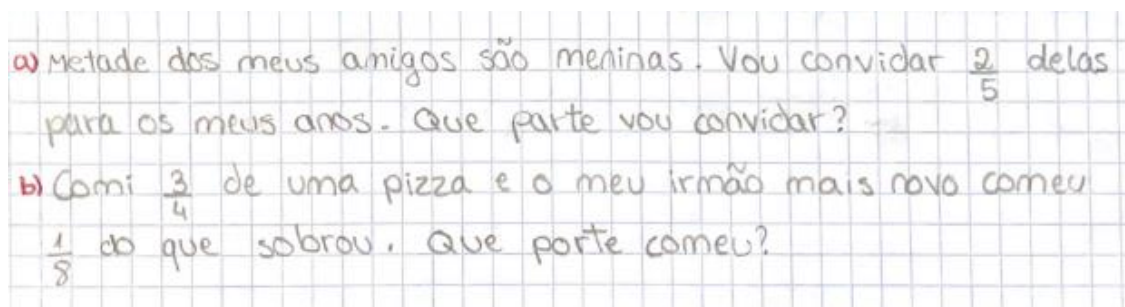 a) Metade dos meus amigos são meninas. Vou convidar 2/5 delas
para os meus anos. Que parte vou convidar?
b) Comi 3/4 de uma pizza e o meu irmão mais novo comeu
1/8 do que sobrou. Que porte comeu?